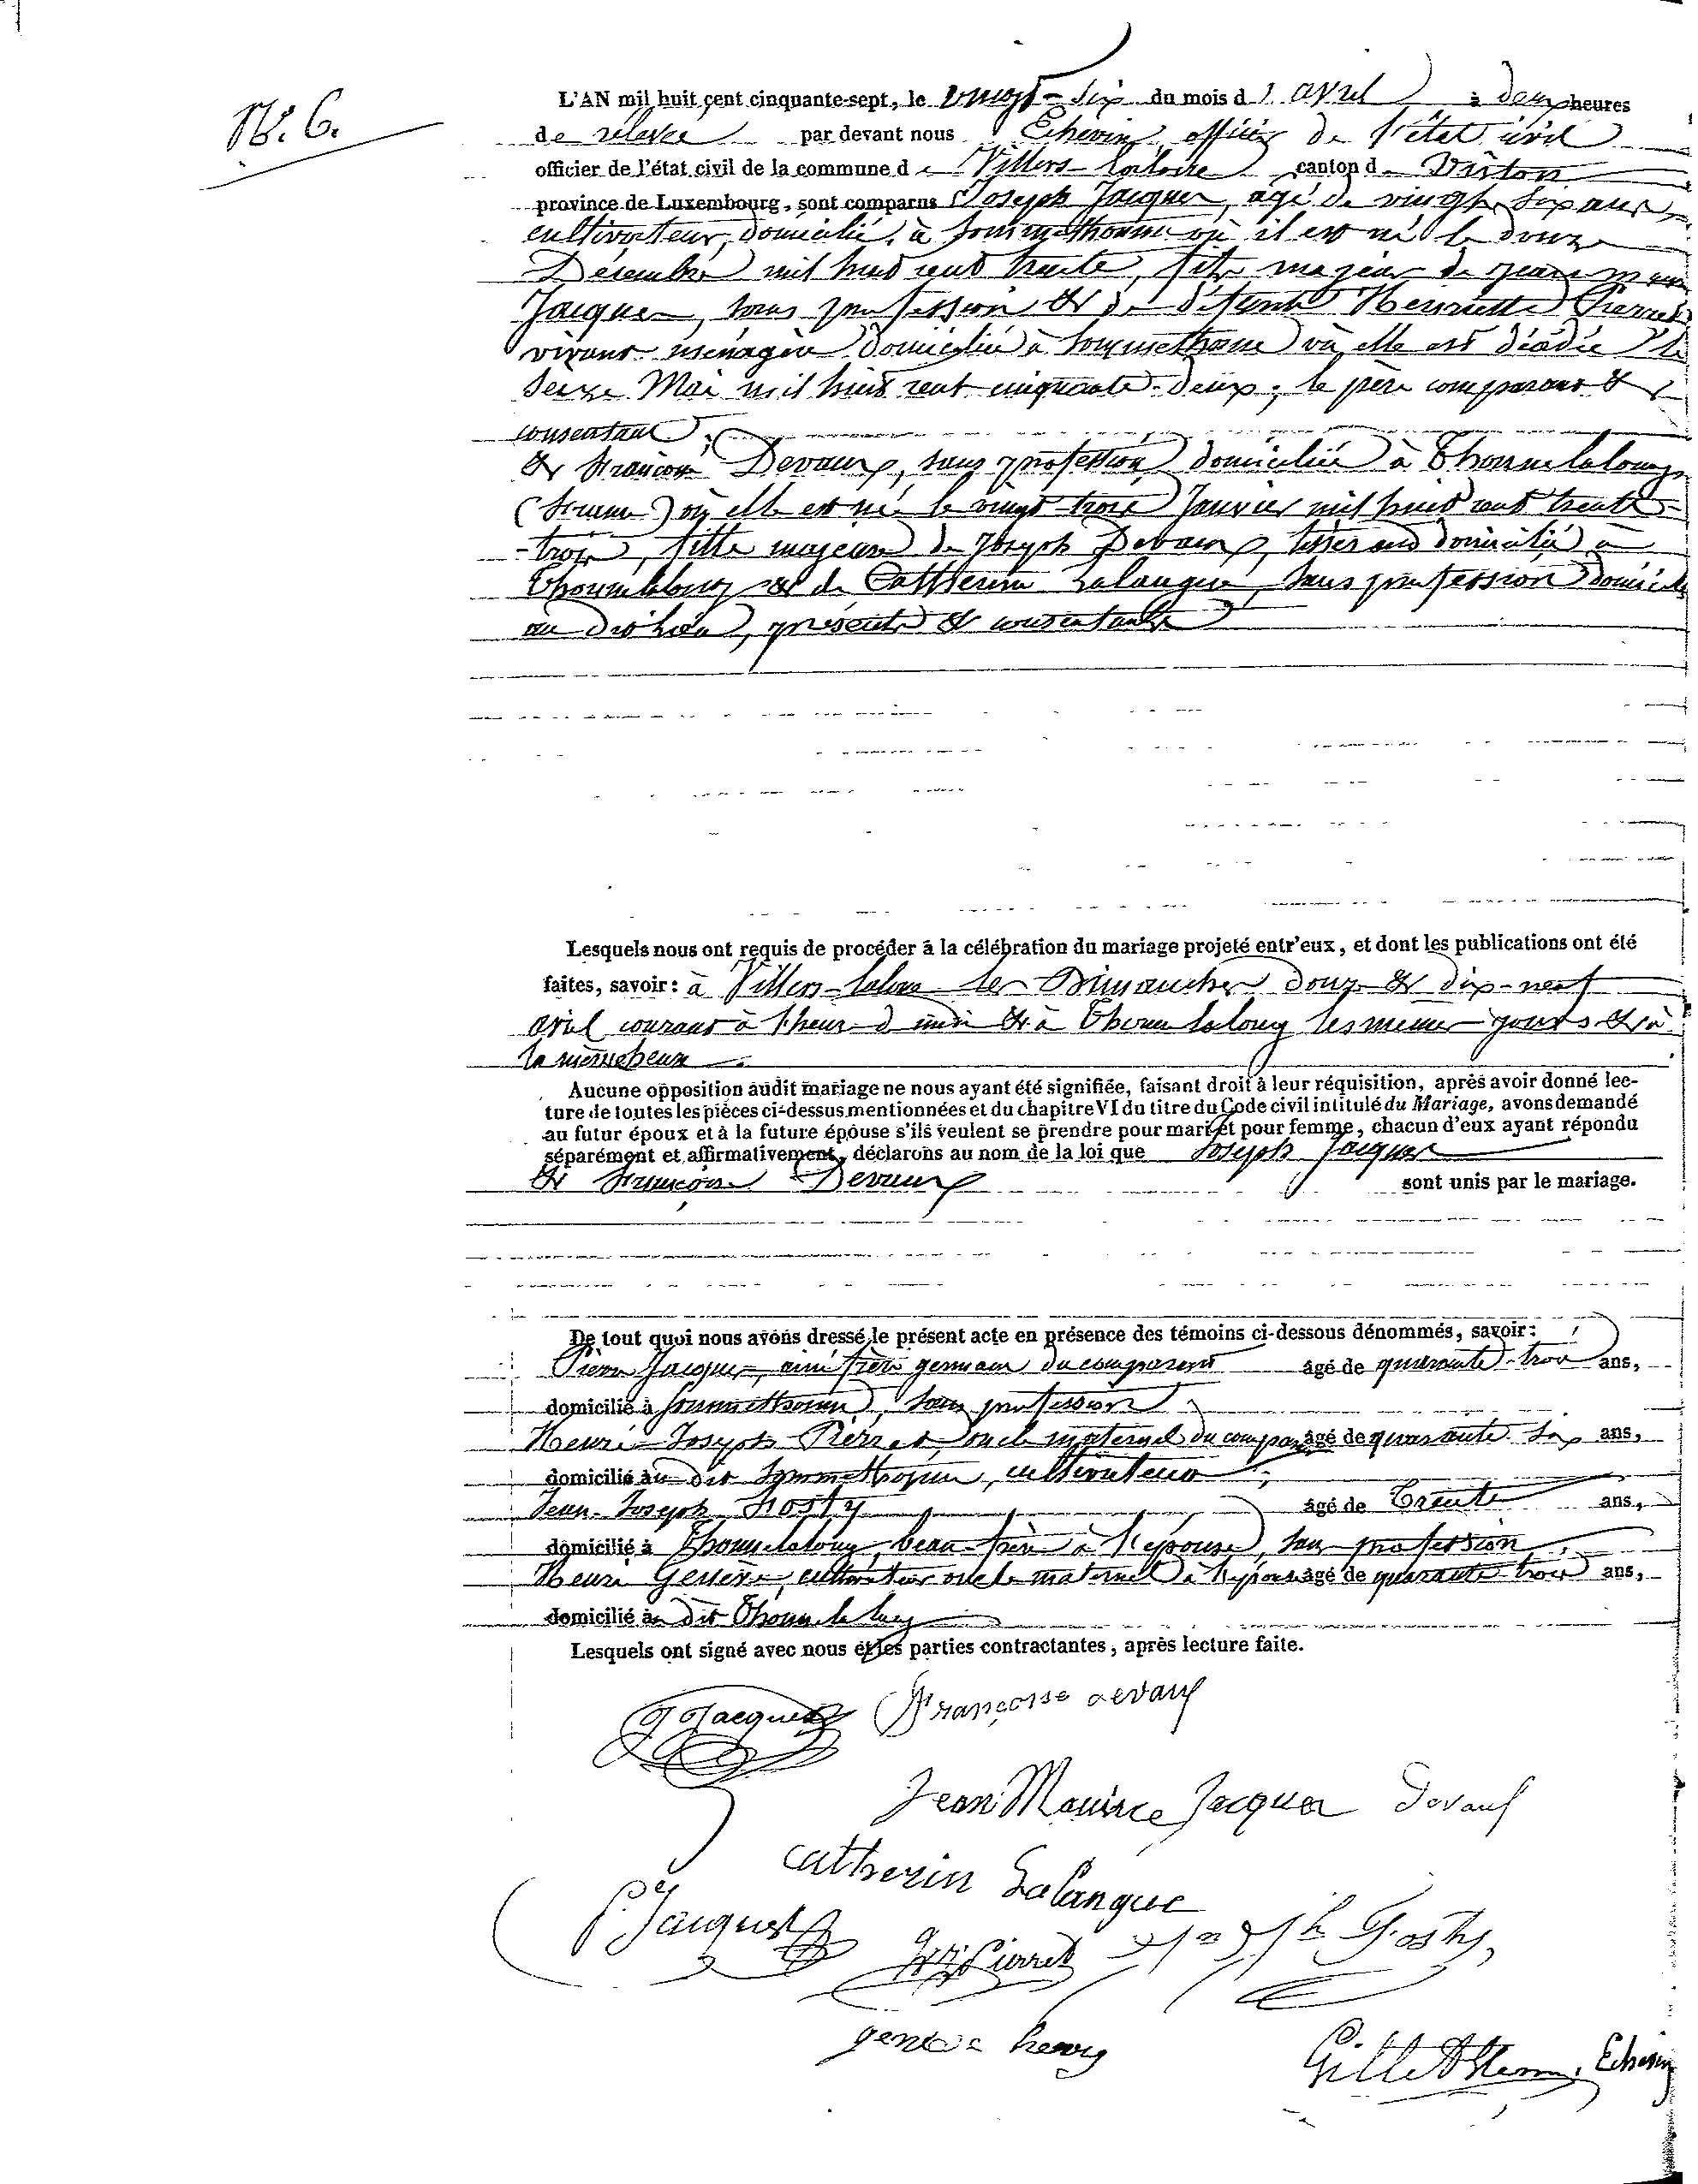 N°. 6.
L'AN mil huit cent cinquante-sept, le vingt-six du mois d'avril à deux heures
de relevée par devant nous Echevin, officier de l'état civil
officier de l'état civil de la commune de Villers-la-loue canton de Virton
province de Luxembourg, sont comparus Joseph Jacques, agé de vingt six ans,
cultivateur, domicilié à Sommethonne où il est né le douze
Décembre mil huit cent trente, fils majeur de Jean
Jacques, sans profession & de défunte Henriette Pierret
vivant ménagère domiciliée à Sommethonne où elle est décédée le
seize Mai mil huit cent cinquante-deux; le père comparant &
consentant;
& Françoise Devaux, sans profession, domiciliée à Thonnelalong
où elle est née le vingt-trois Janvier mil huit cent trente-
-trois, fille majeure de Joseph Devaux, tisserand domicilié à
Thonnelalong & de Catherine Lalangue, sans profession domiciliée
au dit lieu, présents & consentants
Lesquels nous ont requis de procéder à la célébration du mariage projeté entr'eux, et dont les publications ont été
faites, savoir: à Villers-laloue les Dimanches douze & dix-neuf
avril courant à l'heure de midi & à Thonnelalong les mêmes jours & à
la même heure.
Aucune opposition audit mariage ne nous ayant été signifiée, faisant droit à leur réquisition, après avoir donné lec-
ture de toutes les pièces ci-dessus mentionnées et du chapitre VI du titre du Code civil intitulé du Mariage, avons demandé
au futur époux et à la future épouse s'ils veulent se prendre pour mari et pour femme, chacun d'eux ayant répondu
séparément et affirmativement, déclarons au nom de la loi que Joseph Jacques
& Françoise Devaux sont unis par le mariage.
De tout quoi nous avons dressé le présent acte en présence des témoins ci-dessous dénommés, savoir:
Pierre Jacques, ainé frère germain du comparant âgé de quarante-trois ans,
domicilié à Sommethonne, sans profession
Henri-Joseph Pierret oncle maternel du comparant âgé de quarante six ans,
domicilié au dit Sommethonne, cultivateur;
Jean-Joseph Hosty âgé de Trente ans,
domicilié à Thonnelalong, beau-frère à l'épouse, sans profession
Henri Genève, cultivateur oncle maternel à l'épouse âgé de quarante-trois ans,
domicilié au dit Thonnelalong
Lesquels ont signé avec nous et les parties contractantes, après lecture faite.
J Jacques Françoise devaux
Jean Maurice Jacques Devaux
Catherin Lalangue
P. Jacques
Pierret
henry
Echevin